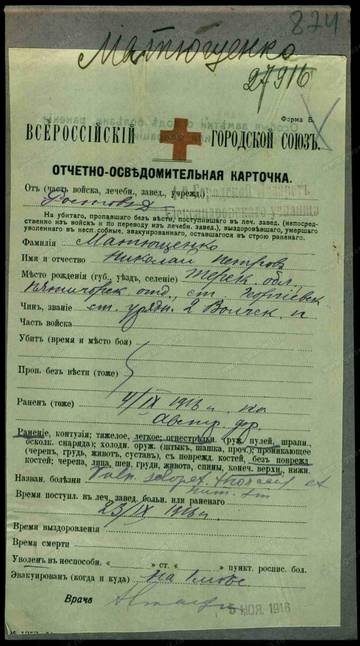 824
Матющенко
27916
Форма Б
ВСЕРОССІЙСКІЙ ГОРОДСКОЙ СОЮЗЪ.
ОТЧЕТНО-ОСВѢДОМИТЕЛЬНАЯ КАРТОЧКА.
Отъ (часть войска, лечебн. завед., учрежд.)
Ростовъ
На убитаго, пропавшаго безъ вѣсти, поступившаго въ леч. завед. (непосред-
ственно изъ войскъ и по переводу изъ лечебн. завед.), выздоровѣвшаго, умершаго
уволеннаго въ несп.собные, эвакуированнаго, оставшагося въ строю раненаго.
Фамилія Матющенко
Имя и отчество Николай Петров
Мѣсто рожденія (губ., уѣздъ, селеніе) Терек. обл.
Пятигорск отд. ст. Георгіевск
Чинъ, званіе ст. урядн. 2 Волжск. п
Часть войска
Убитъ (время и мѣсто боя)
Проп. безъ вѣсти (тоже)
Раненъ (тоже) 4/IX 1916 г. на
Австр. фр.
Раненіе, контузія; тяжелое, легкое; огнестрѣльн. (руж. пулей, шрапн.,
осколк. снаряда); холодн. оруж. (штыкъ, шашка, проч.); проникающее
(черепъ, грудь, животъ, суставъ), съ поврежд. костей, безъ поврежд.
костей; черепа, лица, шеи, груди, живота, спины, конеч. верхн., нижн.
Назван. болѣзни Vuln. sclopet. thoracis et
Время поступл. въ леч. завед. больн. или раненаго
23/IX 1916 г.
Время выздоровленія
Время смерти
Уволенъ въ неспособн. « » ст. « » пункт. роспис. бол.
Эвакуированъ (когда и куда) на
Врачъ
1916